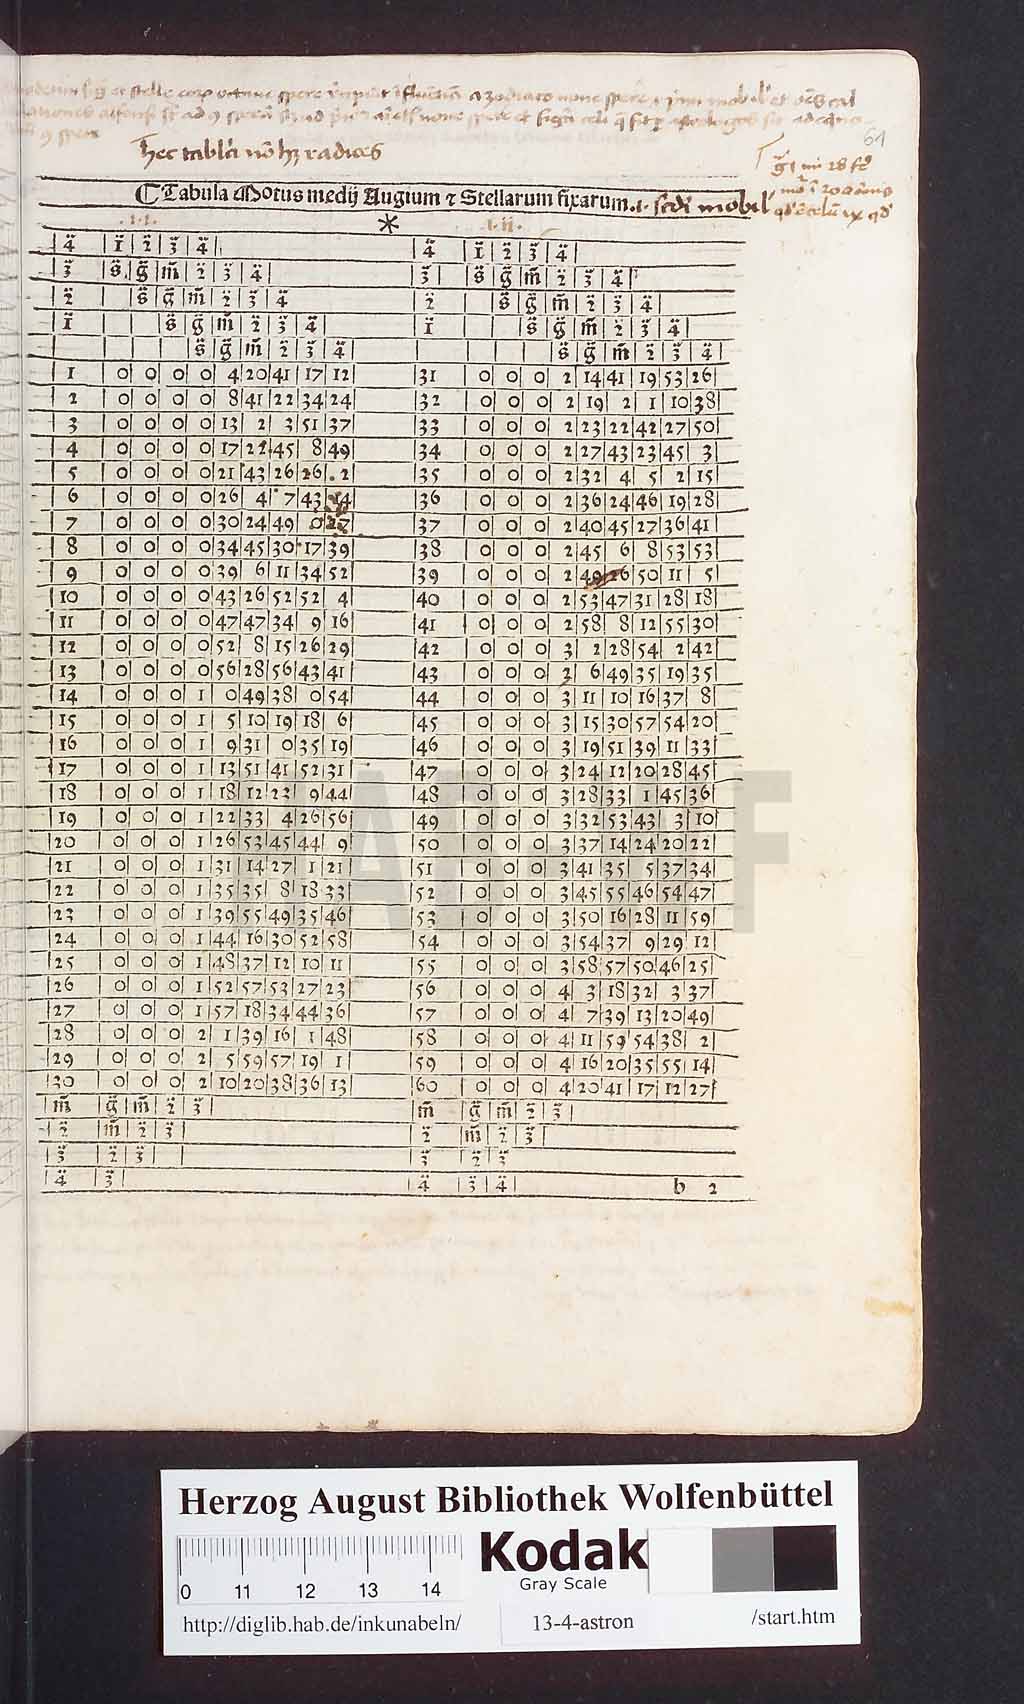 Hec tabla nō hȝ radices
61
Tabula Motus medij Augium ⁊ Stellarum fixarum.
*
4̈ | 1̈ | 2̈ | 3̈ | 4̈ | 4̈ | 1̈ | 2̈ | 3̈ | 4̈
3̈ | s̈ | g̈ | m̄ | 2̈ | 3̈ | 4̈ | 3̈ | s̈ | g̈ | m̄ | 2̈ | 3̈ | 4̈
2̈ | s̈ | g̈ | m̄ | 2̈ | 3̈ | 4̈ | 2̈ | s̈ | g̈ | m̄ | 2̈ | 3̈ | 4̈
1̈ | s̈ | g̈ | m̄ | 2̈ | 3̈ | 4̈ | 1̈ | s̈ | g̈ | m̄ | 2̈ | 3̈ | 4̈
s̈ | g̈ | m̄ | 2̈ | 3̈ | 4̈ | s̈ | g̈ | m̄ | 2̈ | 3̈ | 4̈
1 0 0 0 0 4 20 41 17 12 31 0 0 0 2 14 41 19 53 26
2 0 0 0 0 8 41 22 34 24 32 0 0 0 2 19 2 1 10 38
3 0 0 0 0 13 2 3 51 37 33 0 0 0 2 23 22 42 27 50
4 0 0 0 0 17 22 45 8 49 34 0 0 0 2 27 43 23 45 3
5 0 0 0 0 21 43 26 26 2 35 0 0 0 2 32 4 5 2 15
6 0 0 0 0 26 4 7 43 14 36 0 0 0 2 36 24 46 19 28
7 0 0 0 0 30 24 49 0 27 37 0 0 0 2 40 45 27 36 41
8 0 0 0 0 34 45 30 17 39 38 0 0 0 2 45 6 8 53 53
9 0 0 0 0 39 6 11 34 52 39 0 0 0 2 49 26 50 11 5
10 0 0 0 0 43 26 52 52 4 40 0 0 0 2 53 47 31 28 18
11 0 0 0 0 47 47 34 9 16 41 0 0 0 2 58 8 12 55 30
12 0 0 0 0 52 8 15 26 29 42 0 0 0 3 2 28 54 2 42
13 0 0 0 0 56 28 56 43 41 43 0 0 0 3 6 49 35 19 35
14 0 0 0 1 0 49 38 0 54 44 0 0 0 3 11 10 16 37 8
15 0 0 0 1 5 10 19 18 6 45 0 0 0 3 15 30 57 54 20
16 0 0 0 1 9 31 0 35 19 46 0 0 0 3 19 51 39 11 33
17 0 0 0 1 13 51 41 52 31 47 0 0 0 3 24 12 20 28 45
18 0 0 0 1 18 12 23 9 44 48 0 0 0 3 28 33 1 45 36
19 0 0 0 1 22 33 4 26 56 49 0 0 0 3 32 53 43 3 10
20 0 0 0 1 26 53 45 44 9 50 0 0 0 3 37 14 24 20 22
21 0 0 0 1 31 14 27 1 21 51 0 0 0 3 41 35 5 37 34
22 0 0 0 1 35 35 8 18 33 52 0 0 0 3 45 55 46 54 47
23 0 0 0 1 39 55 49 35 46 53 0 0 0 3 50 16 28 11 59
24 0 0 0 1 44 16 30 52 58 54 0 0 0 3 54 37 9 29 12
25 0 0 0 1 48 37 12 10 11 55 0 0 0 3 58 57 50 46 25
26 0 0 0 1 52 57 53 27 23 56 0 0 0 4 3 18 32 3 37
27 0 0 0 1 57 18 34 44 36 57 0 0 0 4 7 39 13 20 49
28 0 0 0 2 1 39 16 1 48 58 0 0 0 4 11 59 54 38 2
29 0 0 0 2 5 59 57 19 1 59 0 0 0 4 16 20 35 55 14
30 0 0 0 2 10 20 38 36 13 60 0 0 0 4 20 41 17 12 27
m̄ | g̈ | m̄ | 2̈ | 3̈ | m̄ | g̈ | m̄ | 2̈ | 3̈
2̈ | m̄ | 2̈ | 3̈ | 2̈ | m̄ | 2̈ | 3̈
3̈ | 2̈ | 3̈ | 3̈ | 2̈ | 3̈
4̈ | 3̈ | 4̈ | 3̈ | 4̈ b 2
Herzog August Bibliothek Wolfenbüttel
Kodak
Gray Scale
0 11 12 13 14
http://diglib.hab.de/inkunabeln/ 13-4-astron /start.htm